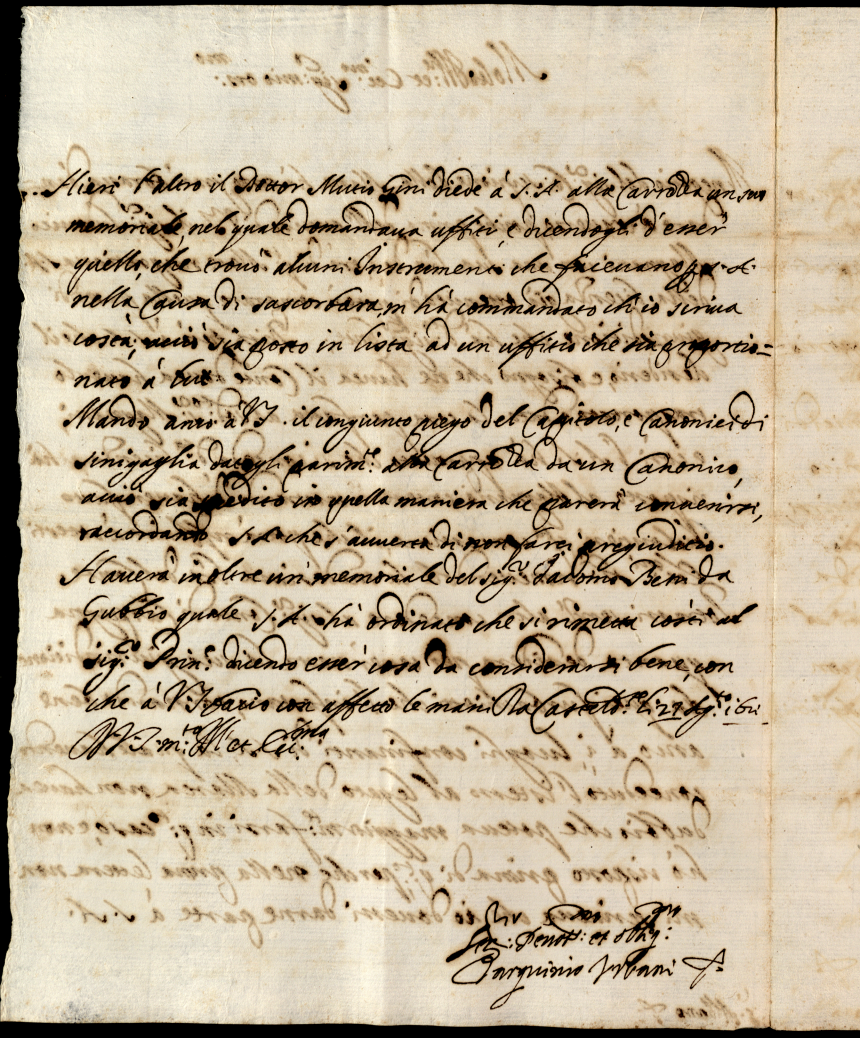 Hieri l'altro il Dottor Mutio Gini diede à S. A. alla Carrozza un suo
memoriale, nel quale domandava uffiti, e dicendogli d'esser
quello, che trovò alcuni Instrumenti che facevano p S. A.
nella Causa di sascorbara, m'hà commandato ch'io scriva
costà, acciò sia posto in lista ad un uffitio che sia proportio=
nato à lui
Mando anco à V.S. il congiunto piego del Capitolo, e Canonici di
sinigaglia datogli parim.te alla Carrozza da un Canonico,
acciò sia spedito in quella maniera che parerà convenirsi,
raccordando S. A. che s'avverta di non farci pregiuditio.
Haverà inoltre un memoriale del sig.r Beni da
Gubbio quale S. A. hà ordinato che si rimetta costì al
sig.r Prin.e dicendo esser cosa da considerarsi bene, con
che à V.S. bacio con affetto le mani Da Casteld.te li 27 Ag.to
D V.S. m.to Ill. et Ecc.ma
Ser.r Devot.mo et obl.mo
Tarquinio Urbani